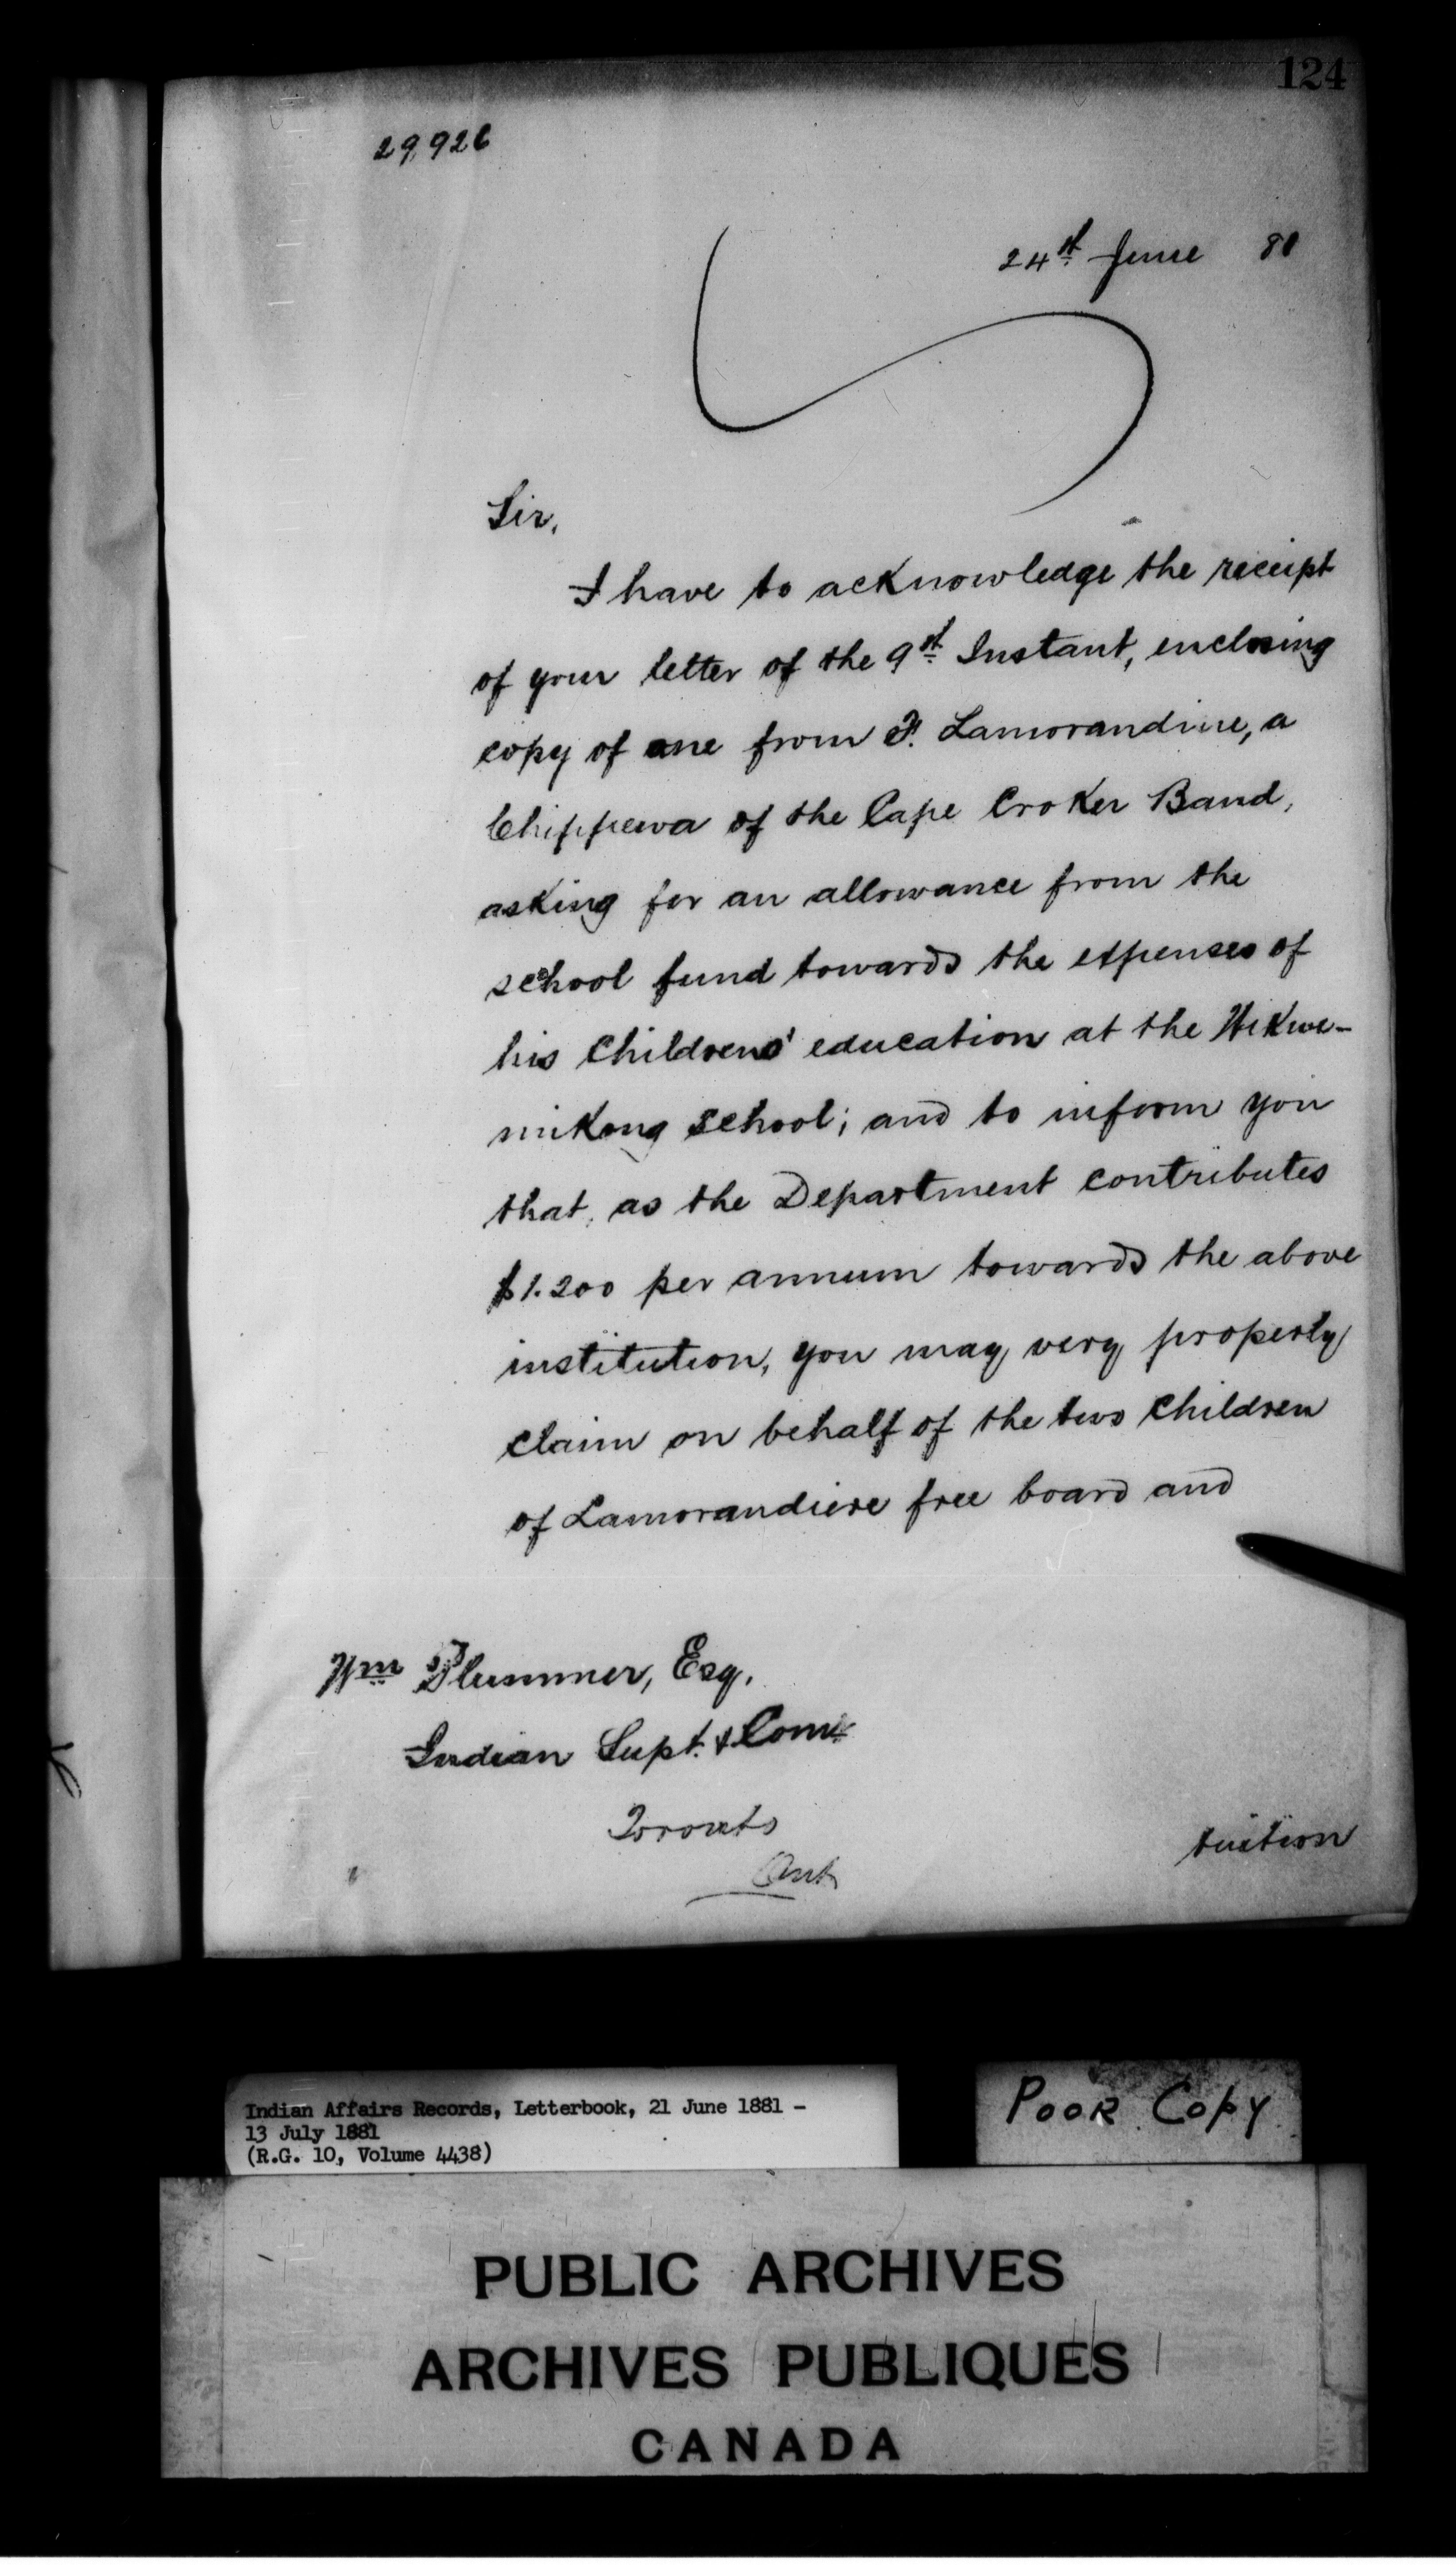 124
29,926
24th June 81
Sir,
I have to acknowledge the receipt
of your letter of the 9th Instant, enclosing
copy of one from F. Lamorandiere, a
Chippewa of the Cape Croker Band,
asking for an allowance from the
school fund towards the expenses of
his Childrens' education at the Wikwe-
mikong School; and to inform you
that, as the Department contributes
$1.200 per annum towards the above
institution, you may very properly
claim on behalf of the two Children
of Lamorandiere free board and
Wm Plummer, Esq.
Indian Supt. & Comr
Toronto
Ont
tuition
Indian Affairs Records, Letterbook, 21 June 1881 –
13 July 1881
(R.G. 10, Volume 4438)
Poor Copy
PUBLIC ARCHIVES
ARCHIVES PUBLIQUES
CANADA